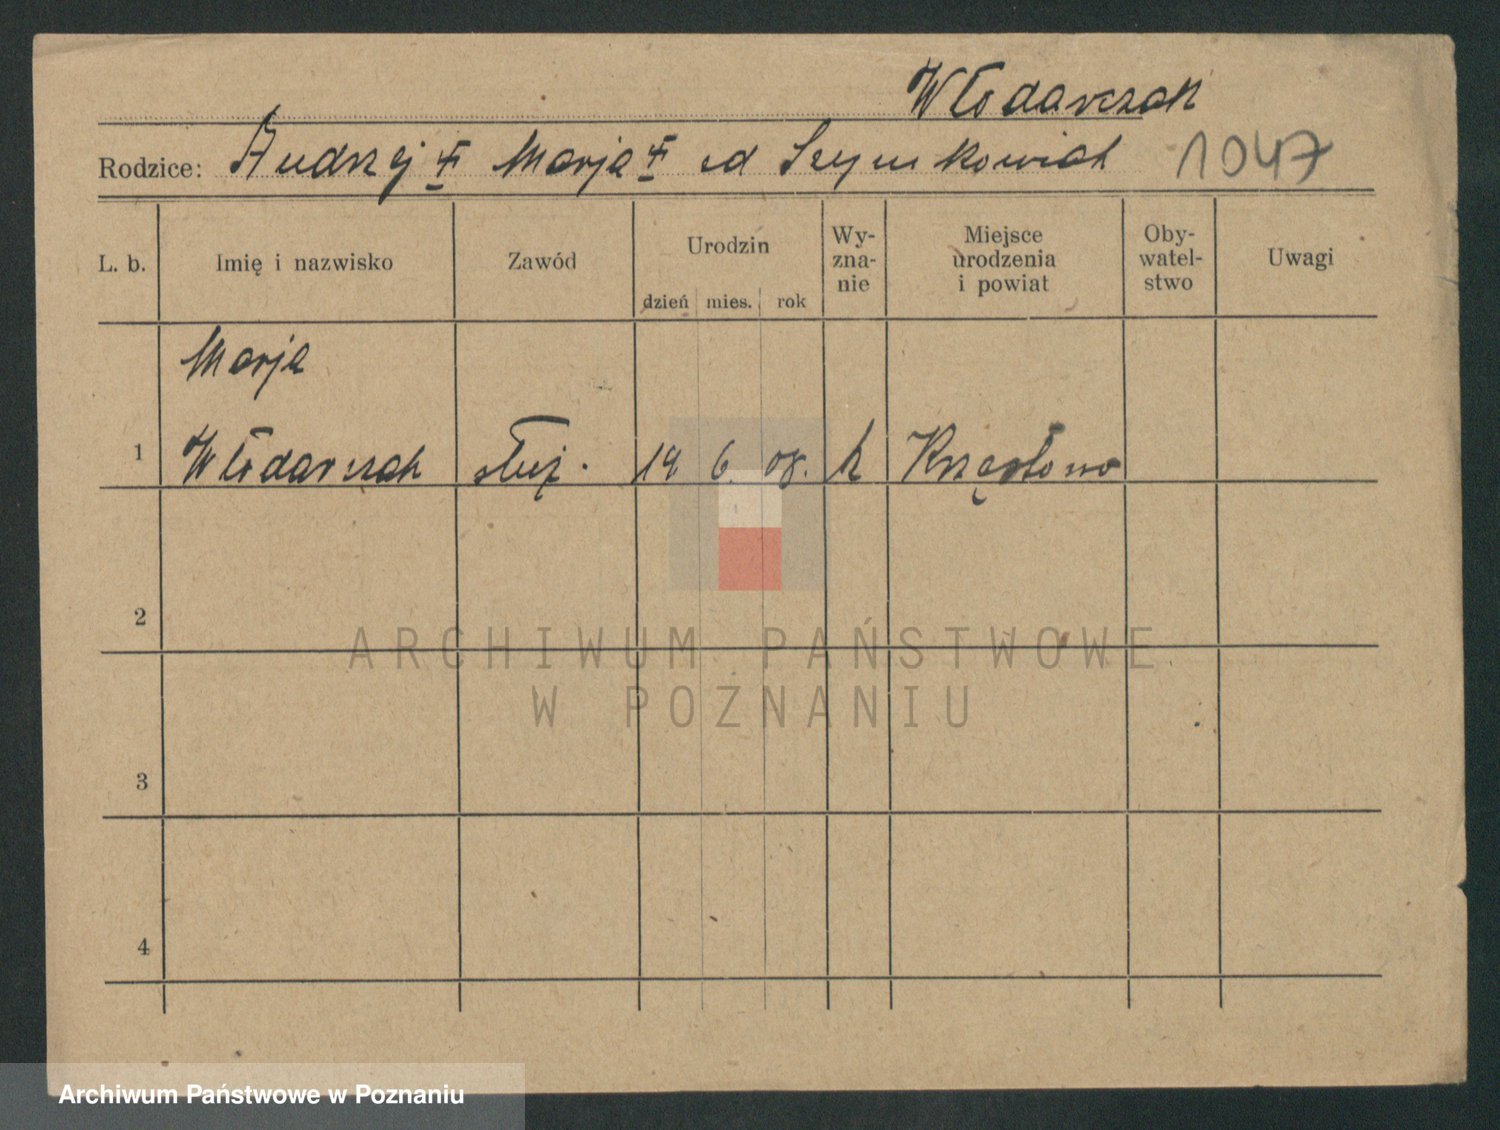 Włodarczak
Rodzice: Andrzej Marja zd Szymkowiak 1047
L. b. Imię i nazwisko Zawód Urodzin dzień mies. rok Wy-zna-nie Miejsce urodzenia i powiat Oby-watel-stwo Uwagi
Marja
1 Włodarczak służ. 19. 6. 08. k
2
3
4
ARCHIWUM PAŃSTWOWE
W POZNANIU
Archiwum Państwowe w Poznaniu